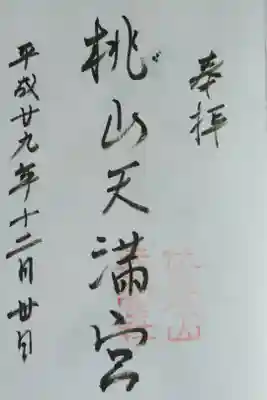 奉拝
桃山天満宮
平成廿九年十二月廿日